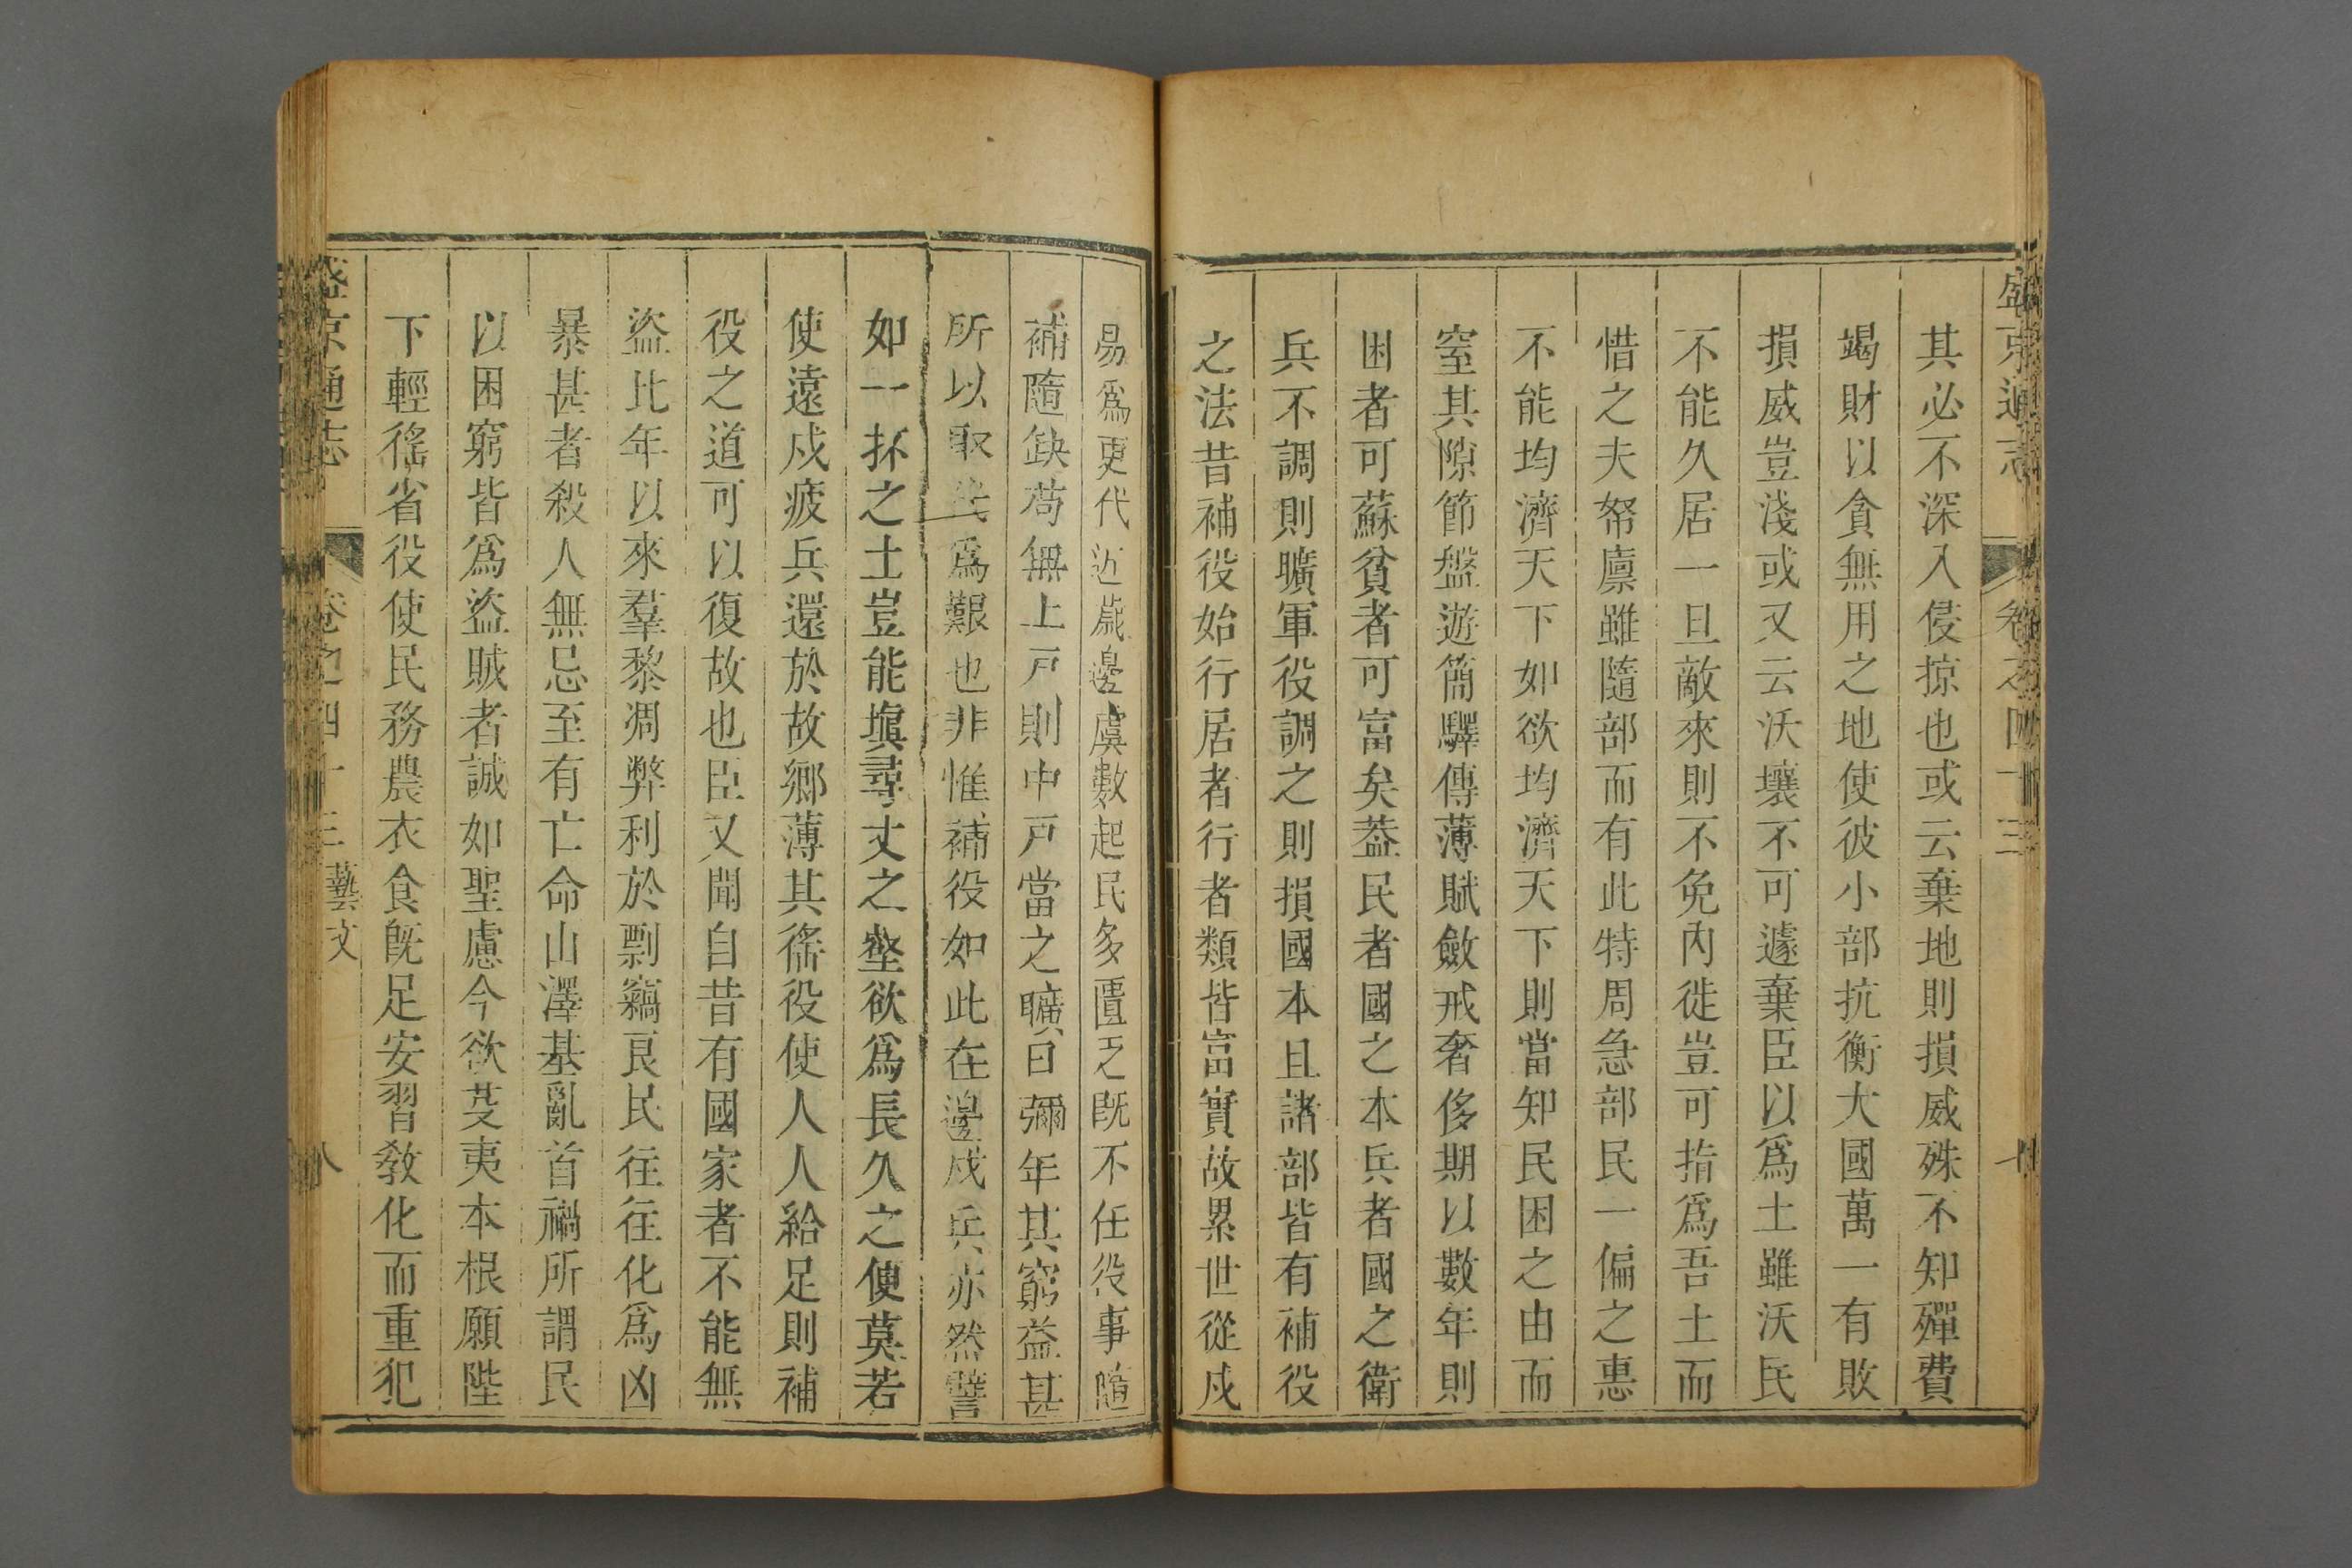 盛京通志 卷之四十三 七
其必不深入侵掠也或云棄地則損威殊不知殫費
竭財以貪無用之地使彼小部抗衡大國萬一有敗
損威豈淺或又云沃壤不可遽棄臣以爲土雖沃民
不能久居一旦敵來則不免內徙豈可指爲吾土而
惜之夫帑廪雖隨部而有此特周急部民一偏之惠
不能均濟天下如欲均濟天下則當知民困之由而
窒其隙節盤遊簡驛傳薄賦斂戒奢侈期以數年則
困者可蘇貧者可富矣葢民者國之本兵者國之衛
兵不調則曠軍役調之則損國本且諸部皆有補役
之法昔補役始行居者行者類皆富實故累世從戍
易爲更代近歲邊虞數起民多匱乏既不任役事隨
補隨缺苟無上戸則中戸當之曠日彌年其窮益甚
所以取代爲艱也非惟補役如此在邊戍兵亦然譬
如一抔之土豈能塡尋丈之壑欲爲長久之便莫若
使遠戍疲兵還於故鄉薄其徭役使人人給足則補
役之道可以復故也臣又聞自昔有國家者不能無
盜比年以來羣黎凋弊利於剽竊良民往往化爲凶
暴甚者殺人無忌至有亡命山澤基亂首禍所謂民
以困窮皆爲盜賊者誠如聖慮今欲芟夷本根願陛
下輕徭省役使民務農衣食既足安習教化而重犯
盛京通志 卷之四十三 藝文 八